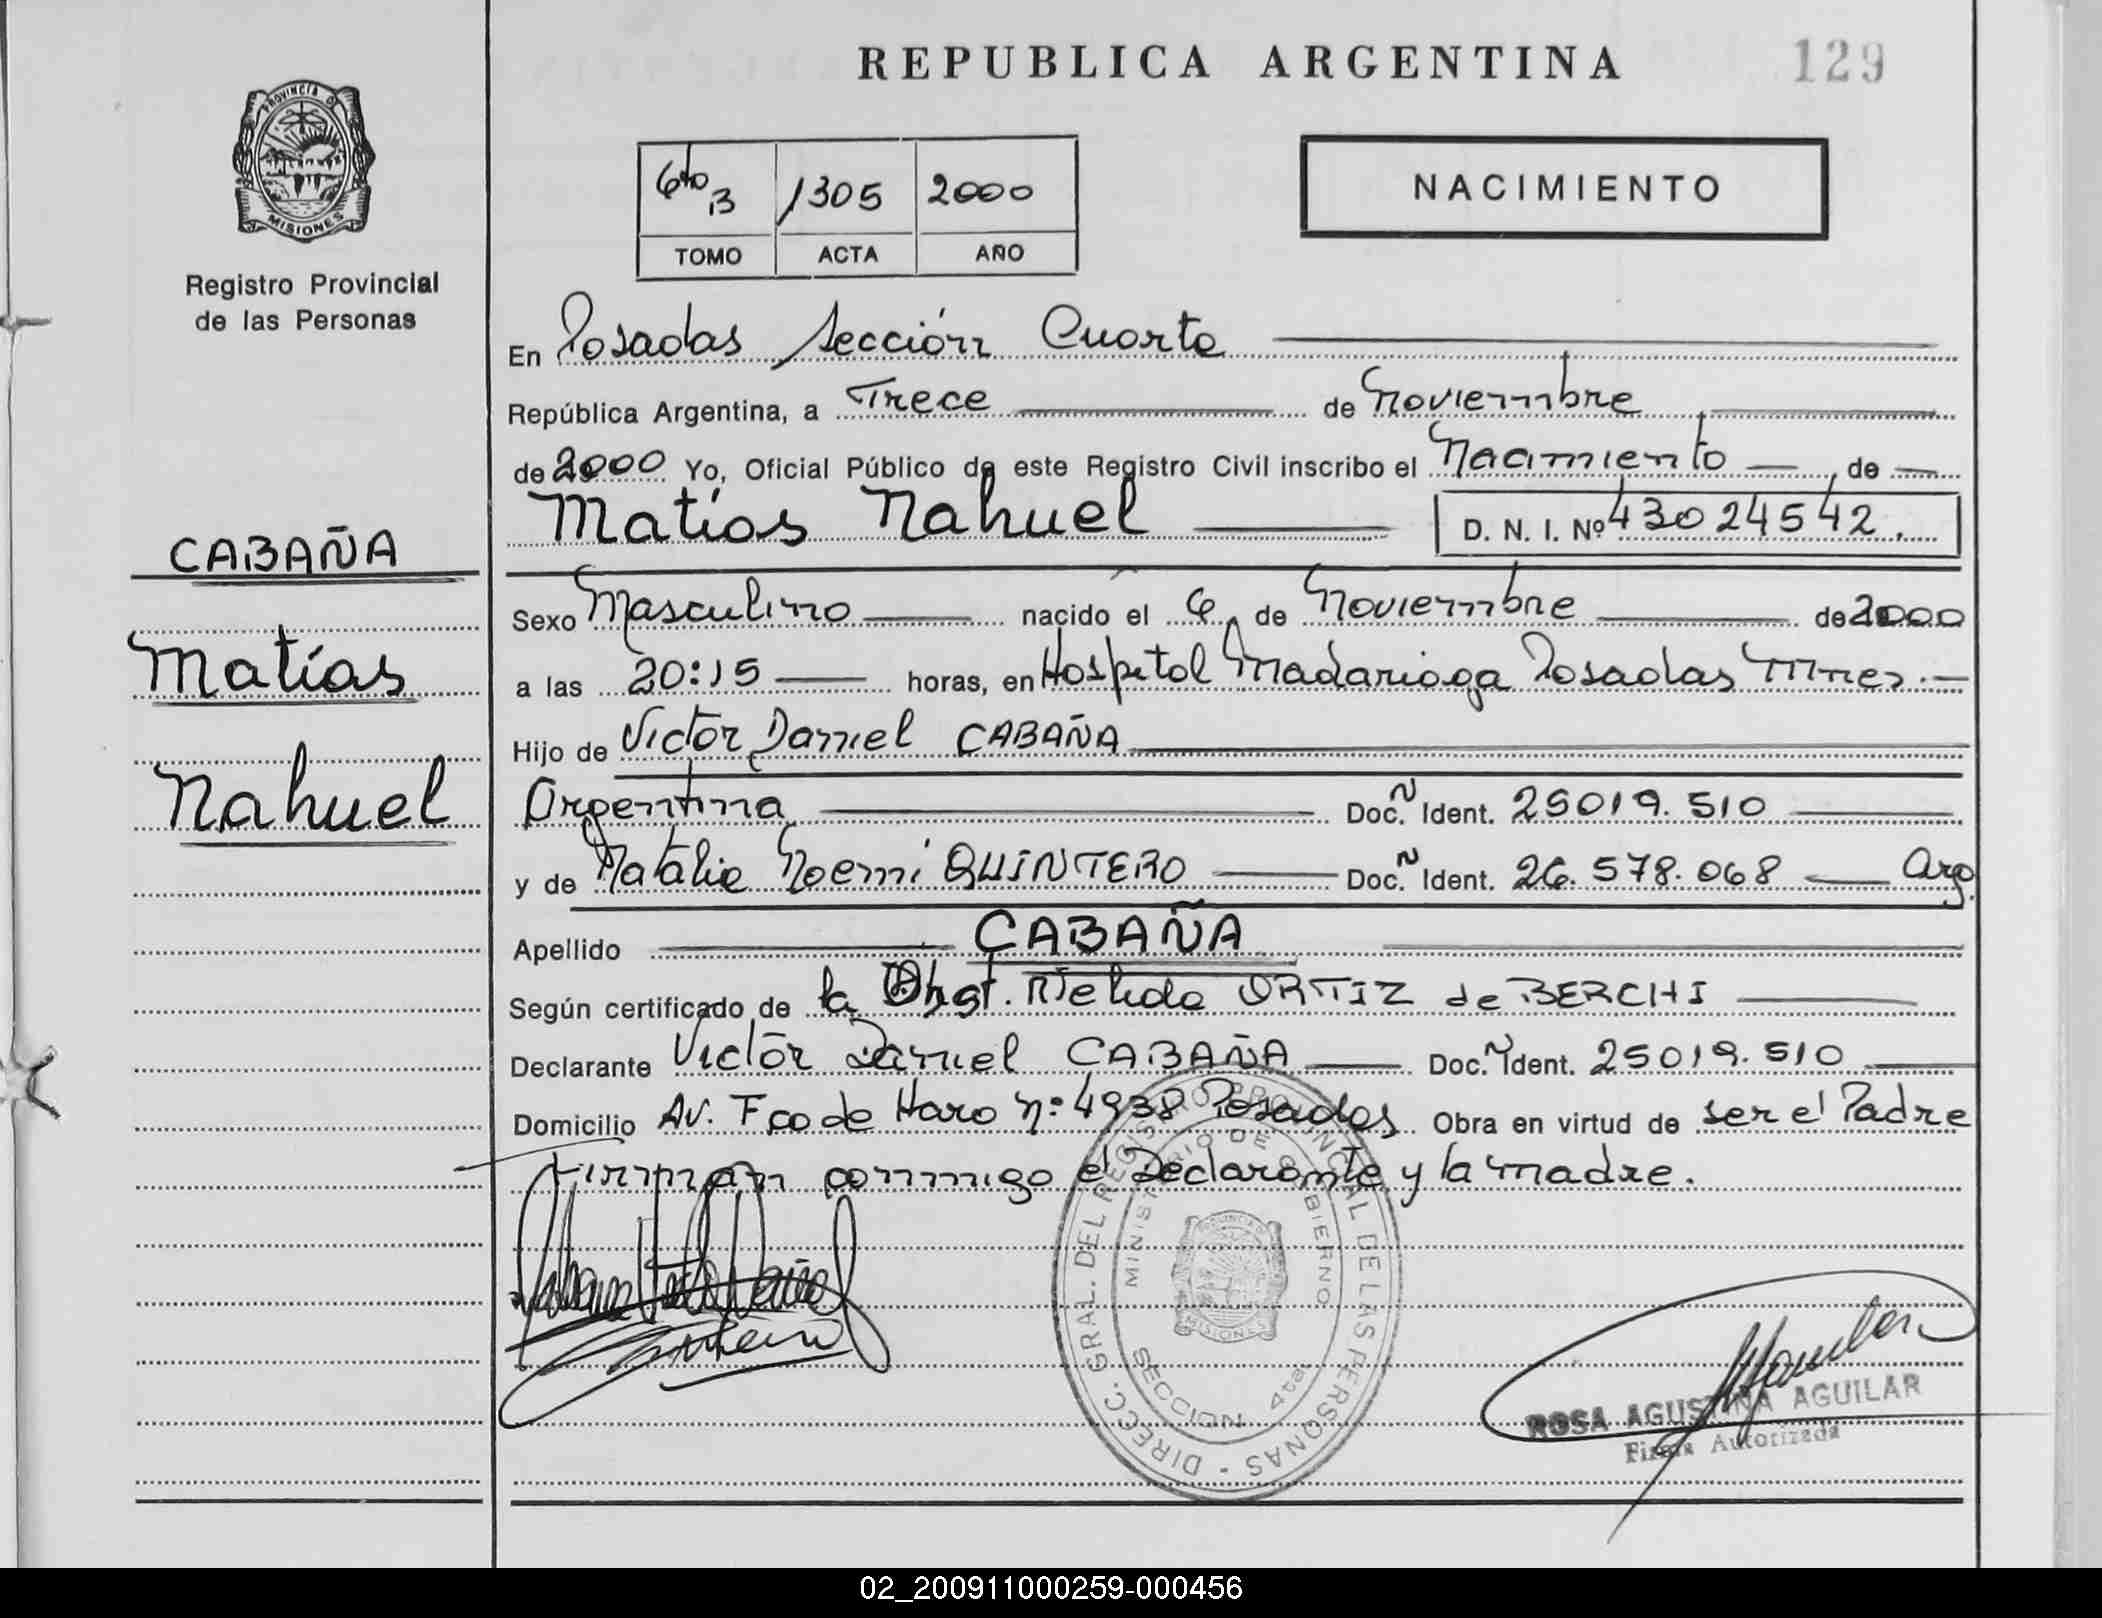 REPUBLICA ARGENTINA
129
PROVINCIA D
MISIONES
Registro Provincial
de las Personas
6to B 1305 2000
TOMO ACTA AÑO
NACIMIENTO
En Posadas Sección Cuarta
República Argentina, a Trece de Noviembre
de 2000 Yo, Oficial Público de este Registro Civil inscribo el Nacimiento, de
Matías Nahuel D. N. I. Nº 43024542.
CABAÑA
Matías
Nahuel
Sexo Masculino nacido el 6 de Noviembre de 2000
a las 20:15 horas, en Hospital Madariaga Posadas Mnes.
Hijo de Victor Daniel CABAÑA
Argentina Doc. N Ident. 25019.510
y de Natalia Noemi QUINTERO Doc. N Ident. 26.578.068 Arg.
Apellido CABAÑA
Según certificado de la Obst. Nelida ORTIZ de BERCHI
Declarante Victor Daniel CABAÑA Doc. N Ident. 25019.510
Domicilio Av. Fco de Haro nº 4938 Posadas Obra en virtud de ser el Padre
Firman conmigo el Declarante y la madre.
DIRECC. GRAL. DEL REGISTRO PROVINCIAL DE LAS PERSONAS -
MINISTERIO DE GOBIERNO
PROVINCIA D
MISIONES
SECCION 4ta.
ROSA AGUSTINA AGUILAR
Firma Autorizada
02_200911000259-000456